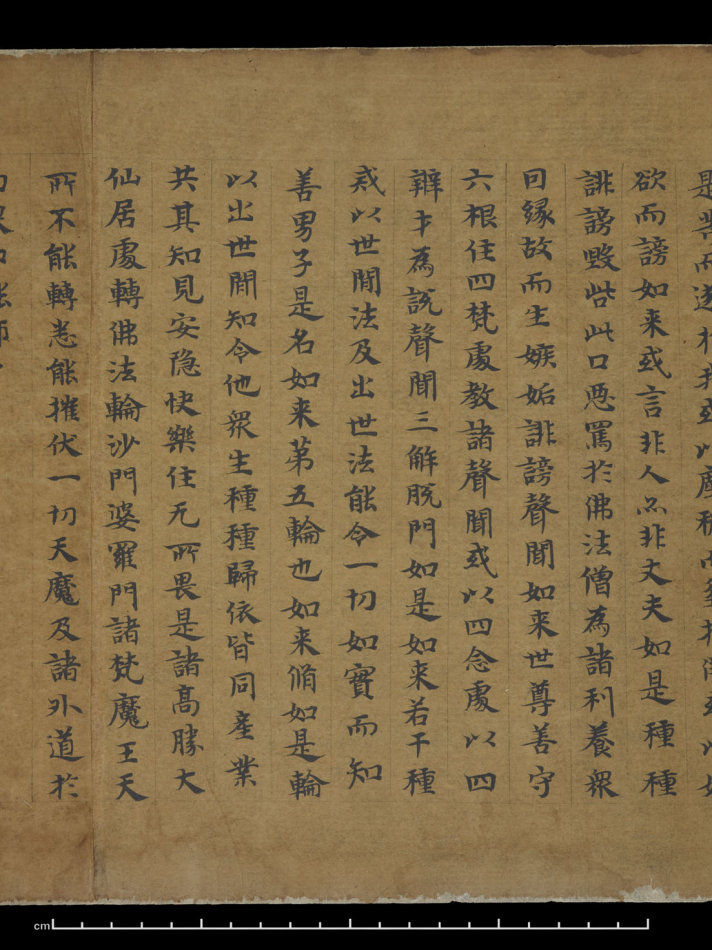 是而送以塵
欲而謗如来或言非人亦非丈夫如是種種
誹謗毀呰此口惡罵於佛法僧為諸利養衆
因緣故而生嫉妬誹謗聲聞如来世尊善守
六根住四梵處教諸聲聞或以四念處以四
辯才為說聲聞三解脫門如是如来若干種
或以世間法及出世法能令一切如實而知
善男子是名如来第五輪也如来脩如是輪
以出世間知令他衆生種種歸依皆同產業
共其知見安隐快樂住无所畏是諸高勝大
仙居處轉佛法輪沙門婆羅門諸梵魔王天
所不能轉悉能摧伏一切天魔及諸外道於
cm